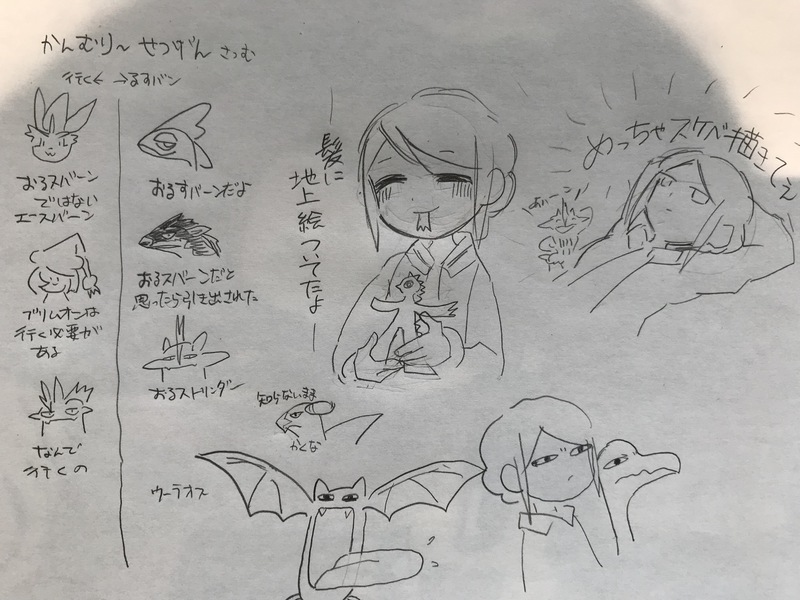 かんむり～ せつげん さつむ
行く← →るすバン
おるスバーン
ではない
エースバーン
ブリムオンは
行く必要が
ある
なんで
行くの
おるすバーンだよ
おるスバーンだと
思ったら引き出された
おるストリンダー
知らないまま
かくな
ウーラオス
髪に
地上絵ついてたよー
めっちゃスケベ描きてえ